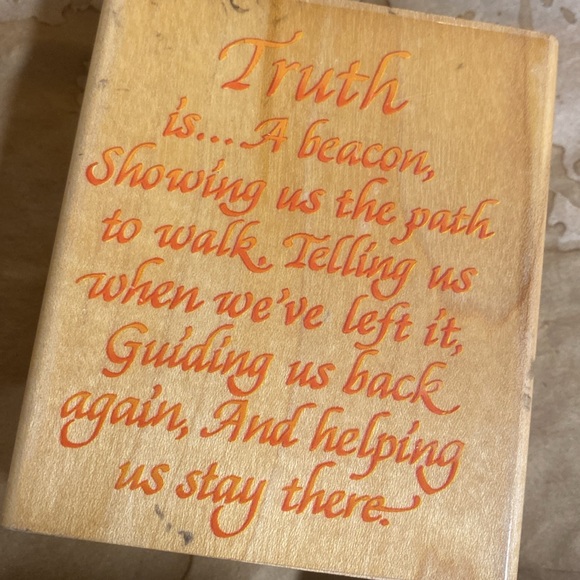 Truth
is... A beacon,
Showing us the path
to walk. Telling us
when we've left it,
Guiding us back
again, And helping
us stay there.